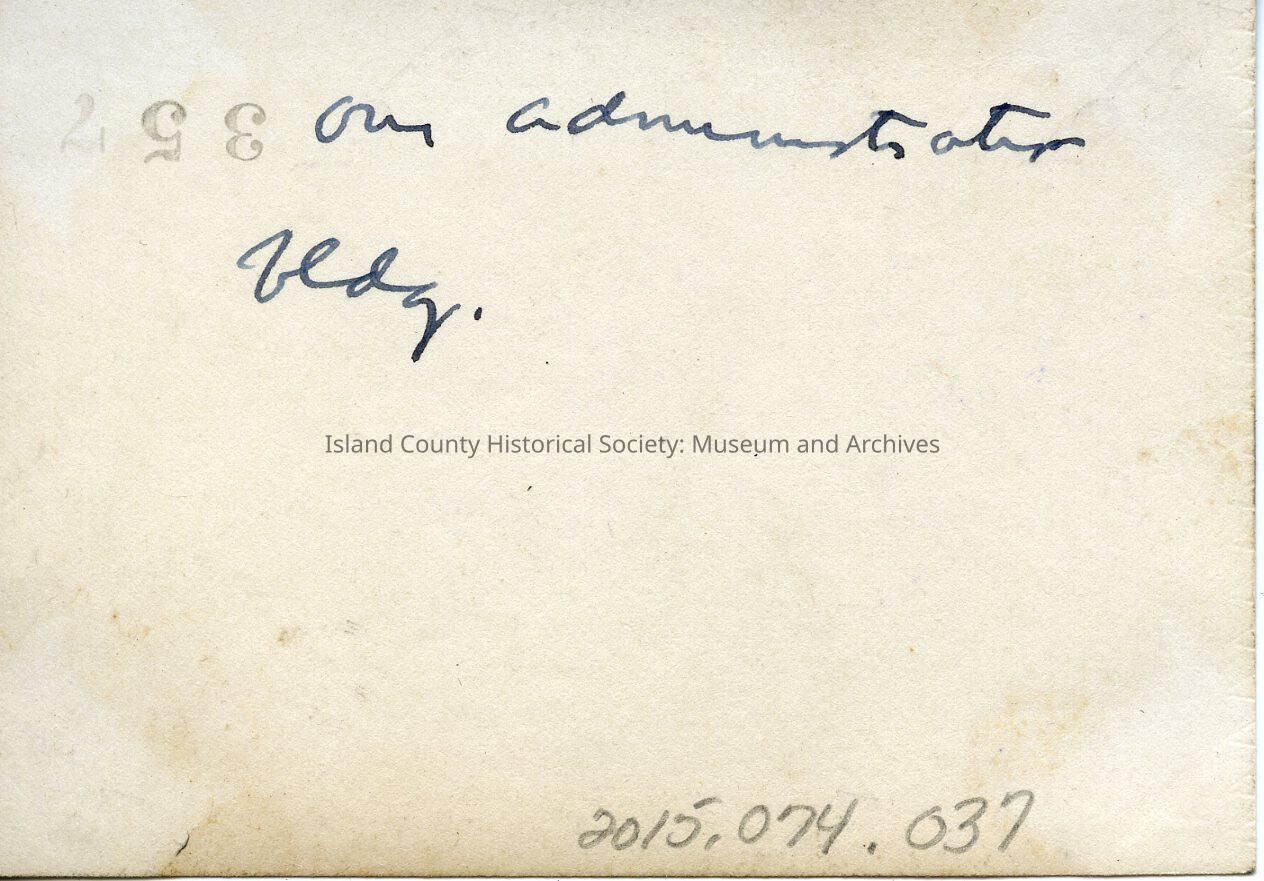 our administration
bldg.
Island County Historical Society: Museum and Archives
2015.074.037